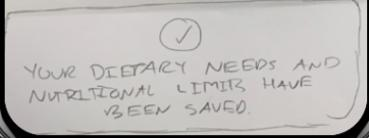 YOUR DIETARY NEEDS AND
NUTRITIONAL LIMITS HAVE
BEEN SAVED.